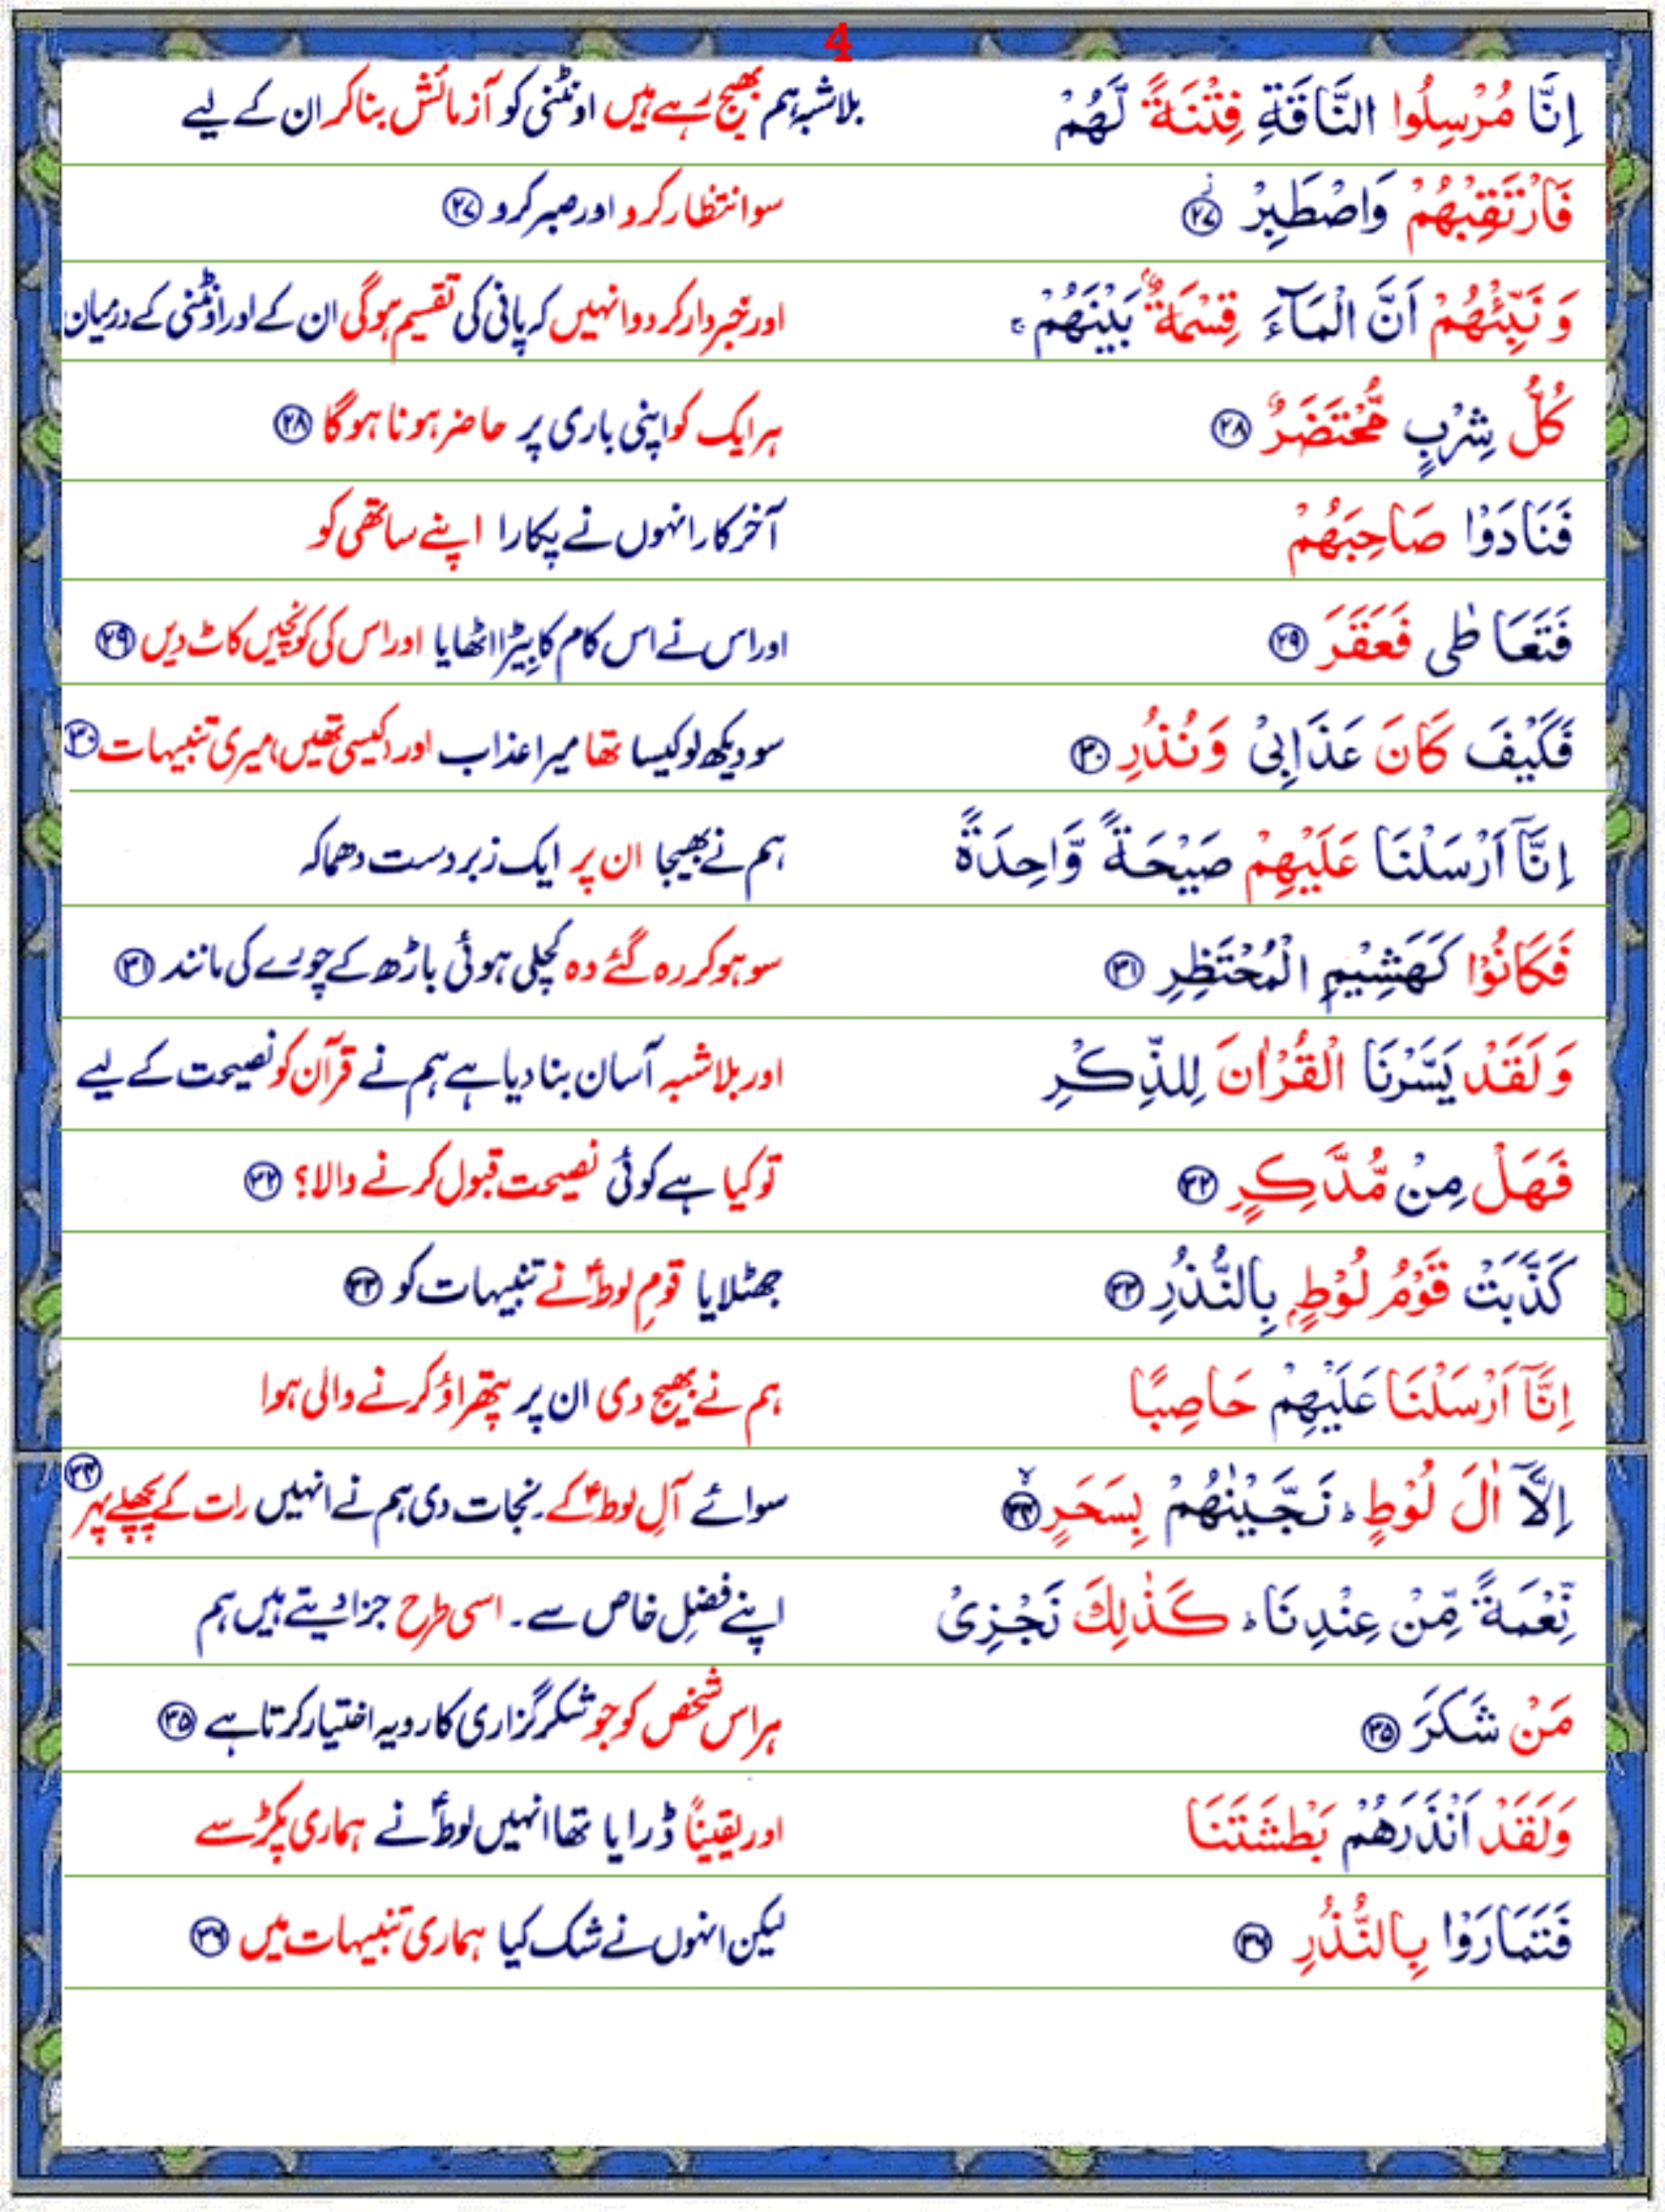 4
اِنَّا مُرْسِلُوا النَّاقَةِ فِتْنَةً لَّهُمْ بلاشبہ ہم بھیج رہے ہیں اونٹنی کو آزمائش بنا کر ان کے لیے
فَارْتَقِبْهُمْ وَاصْطَبِرْ ۲۷ سو انتظار کرو اور صبر کرو ۲۷
وَ نَبِّئْهُمْ اَنَّ الْمَآءَ قِسْمَةٌۢ بَيْنَهُمْ ۚ اور خبردار کر دو انہیں کہ پانی کی تقسیم ہوگی ان کے اور اونٹنی کے درمیان
كُلُّ شِرْبٍ مُّحْتَضَرٌ ۲۸ ہر ایک کو اپنی باری پر حاضر ہونا ہوگا ۲۸
فَنَادَوْا صَاحِبَهُمْ آخر کار انہوں نے پکارا اپنے ساتھی کو
فَتَعَاطٰى فَعَقَرَ ۲۹ اور اس نے اس کام کا بیڑا اٹھایا اور اس کی کونچیں کاٹ دیں ۲۹
فَكَيْفَ كَانَ عَذَابِىْ وَنُذُرِ ۳۰ سو دیکھ لو کیسا تھا میرا عذاب اور (کیسی تھیں) میری تنبیہات ۳۰
اِنَّآ اَرْسَلْنَا عَلَيْهِمْ صَيْحَةً وَّاحِدَةً ہم نے بھیجا ان پر ایک زبردست دھماکہ
فَكَانُوْا كَهَشِيْمِ الْمُحْتَظِرِ ۳۱ سو ہو کر رہ گئے وہ کچلی ہوئی باڑھ کے چورے کی مانند ۳۱
وَ لَقَدْ يَسَّرْنَا الْقُرْاٰنَ لِلذِّكْرِ اور بلاشبہ آسان بنا دیا ہے ہم نے قرآن کو نصیحت کے لیے
فَهَلْ مِنْ مُّدَّكِرٍ ۳۲ تو کیا ہے کوئی نصیحت قبول کرنے والا؟ ۳۲
كَذَّبَتْ قَوْمُ لُوْطٍۭ بِالنُّذُرِ ۳۳ جھٹلایا قومِ لوطؑ نے تنبیہات کو ۳۳
اِنَّآ اَرْسَلْنَا عَلَيْهِمْ حَاصِبًا ہم نے بھیج دی ان پر پتھراؤ کرنے والی ہوا
اِلَّآ اٰلَ لُوْطٍ ؕ نَجَّيْنٰهُمْ بِسَحَرٍ ۳۴ سوائے آلِ لوطؑ کے۔ نجات دی ہم نے انہیں رات کے پچھلے پہر ۳۴
نِّعْمَةً مِّنْ عِنْدِنَا ؕ كَذٰلِكَ نَجْزِىْ اپنے فضلِ خاص سے۔ اسی طرح جزا دیتے ہیں ہم
مَنْ شَكَرَ ۳۵ ہر اس شخص کو جو شکر گزاری کا رویہ اختیار کرتا ہے ۳۵
وَلَقَدْ اَنْذَرَهُمْ بَطْشَتَنَا اور یقیناً ڈرایا تھا انہیں لوطؑ نے ہماری پکڑ سے
فَتَمَارَوْا بِالنُّذُرِ ۳۶ لیکن انہوں نے شک کیا ہماری تنبیہات میں ۳۶